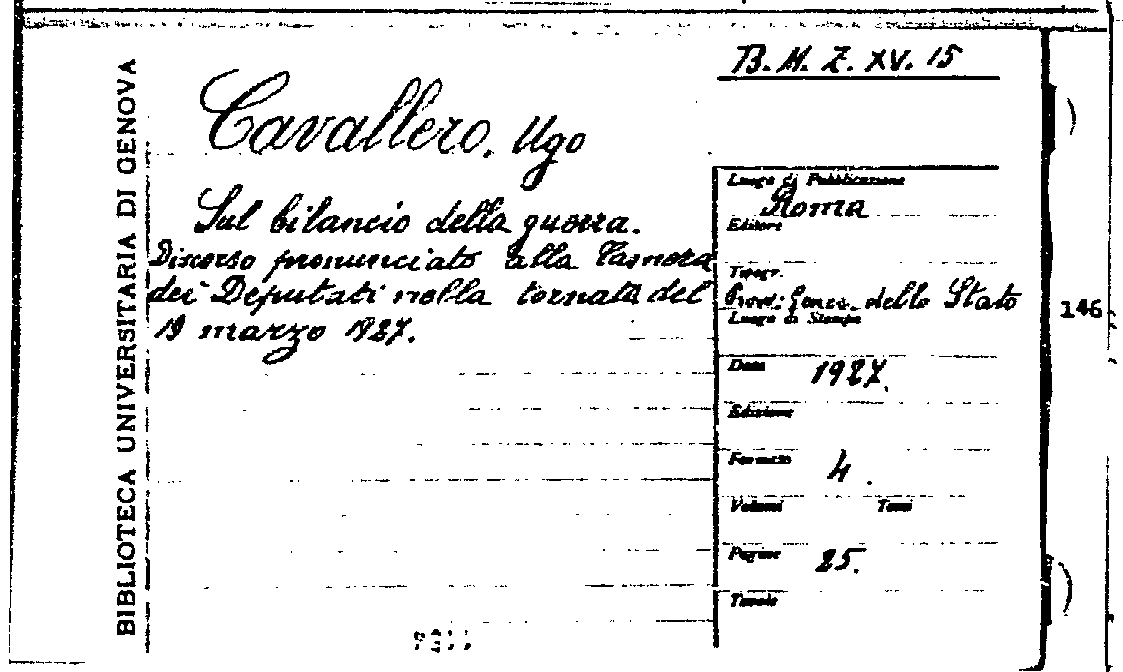 BIBLIOTECA UNIVERSITARIA DI GENOVA
B. M. Z. XV. 15
Cavallero, Ugo
Sul bilancio della guerra.
Discorso pronunciato alla Camera
dei Deputati nella tornata del
19 marzo 1927.
Luogo di Pubblicazione
Roma
Editore
Tipogr.
Prov: Gener. dello Stato
Luogo di Stampa
Data 1927.
Edizione
Formato 4.
Volumi Tomi
Pagine 25.
Tavole
146